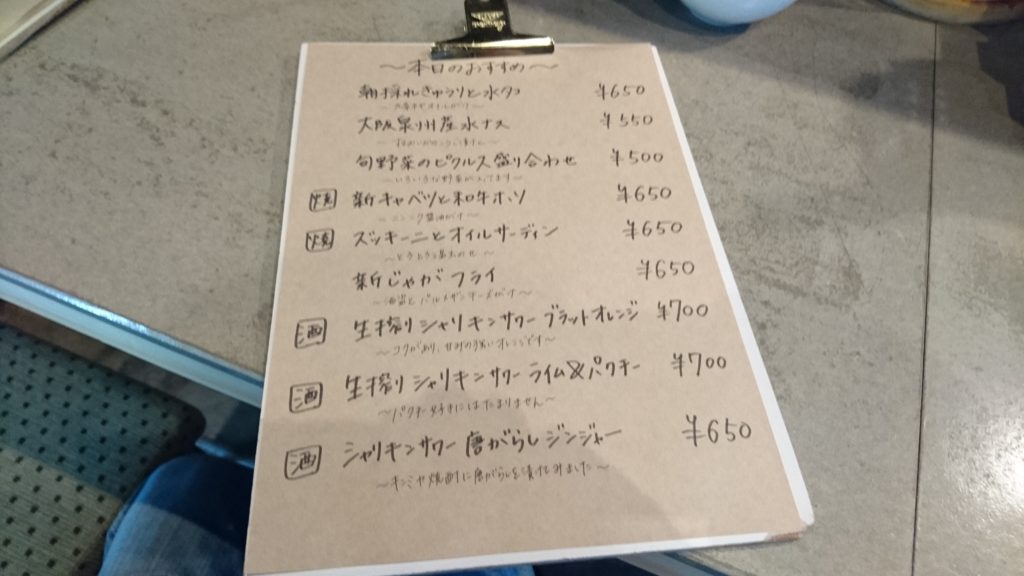 〜本日のおすすめ〜
朝採れきゅうりと水タコ ¥650
大阪泉州産水ナス ¥550
旬野菜のピクルス盛り合わせ ¥500
〜いろいろな野菜が入ってます〜
焼 新キャベツと和牛ホソ ¥650
〜ニンニク醤油がけ〜
焼 ズッキーニとオイルサーディン ¥650
新じゃがフライ ¥650
酒 生搾りシャリキンサワー ブラットオレンジ ¥700
〜コクがあり、甘みの強いオレンジです〜
酒 生搾りシャリキンサワー ライム&パクチー ¥700
〜パクチー好きにはたまりません〜
酒 シャリキンサワー 唐がらしジンジャー ¥650
〜キンミヤ焼酎に唐がらしを漬けてみました〜